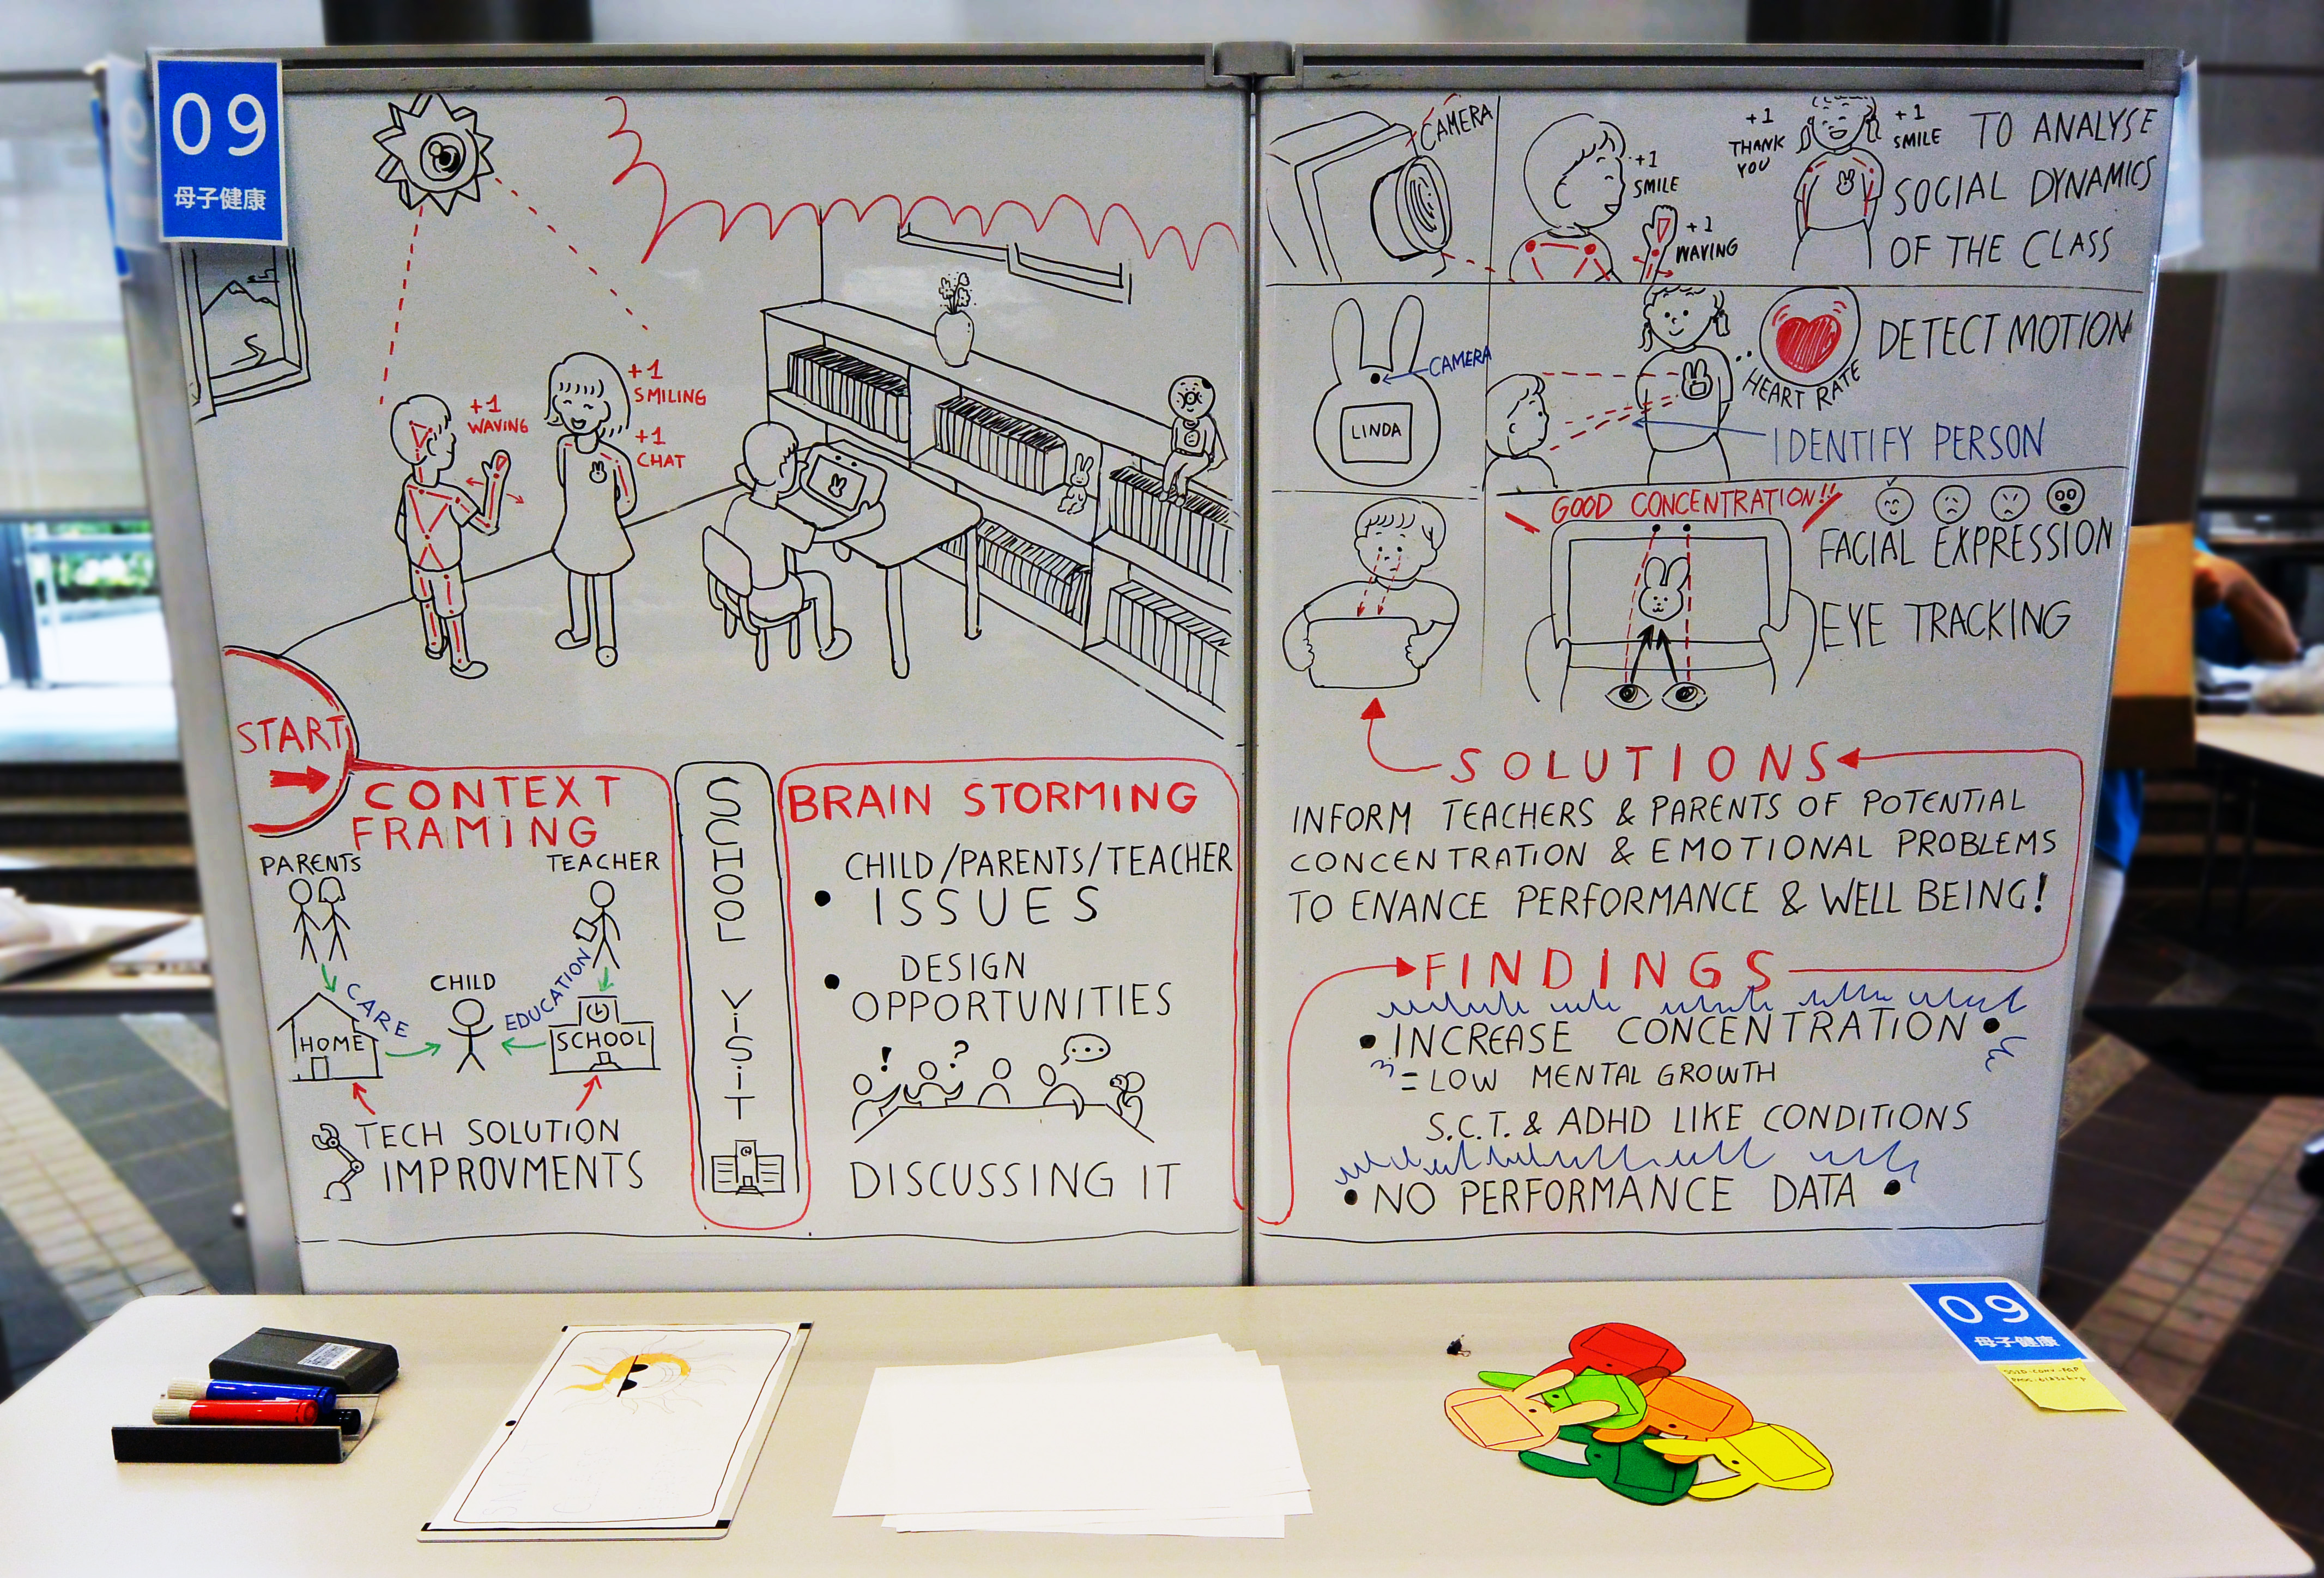 09
母子健康
+1
WAVING
+1
SMILING
+1
CHAT
START
CONTEXT
FRAMING
PARENTS
TEACHER
CHILD
CARE
EDUCATION
HOME
SCHOOL
TECH SOLUTION
IMPROVMENTS
SCHOOL VISIT
BRAIN STORMING
CHILD/PARENTS/TEACHER
• ISSUES
• DESIGN
OPPORTUNITIES
!
?
...
DISCUSSING IT
CAMERA
+1
SMILE
+1
WAVING
+1
THANK
YOU
+1
SMILE
TO ANALYSE
SOCIAL DYNAMICS
OF THE CLASS
CAMERA
LINDA
HEART RATE
DETECT MOTION
IDENTIFY PERSON
GOOD CONCENTRATION!!
FACIAL EXPRESSION
EYE TRACKING
SOLUTIONS
INFORM TEACHERS & PARENTS OF POTENTIAL
CONCENTRATION & EMOTIONAL PROBLEMS
TO ENANCE PERFORMANCE & WELL BEING!
FINDINGS
• INCREASE CONCENTRATION •
= LOW MENTAL GROWTH
S.C.T. & ADHD LIKE CONDITIONS
• NO PERFORMANCE DATA •
09
母子健康